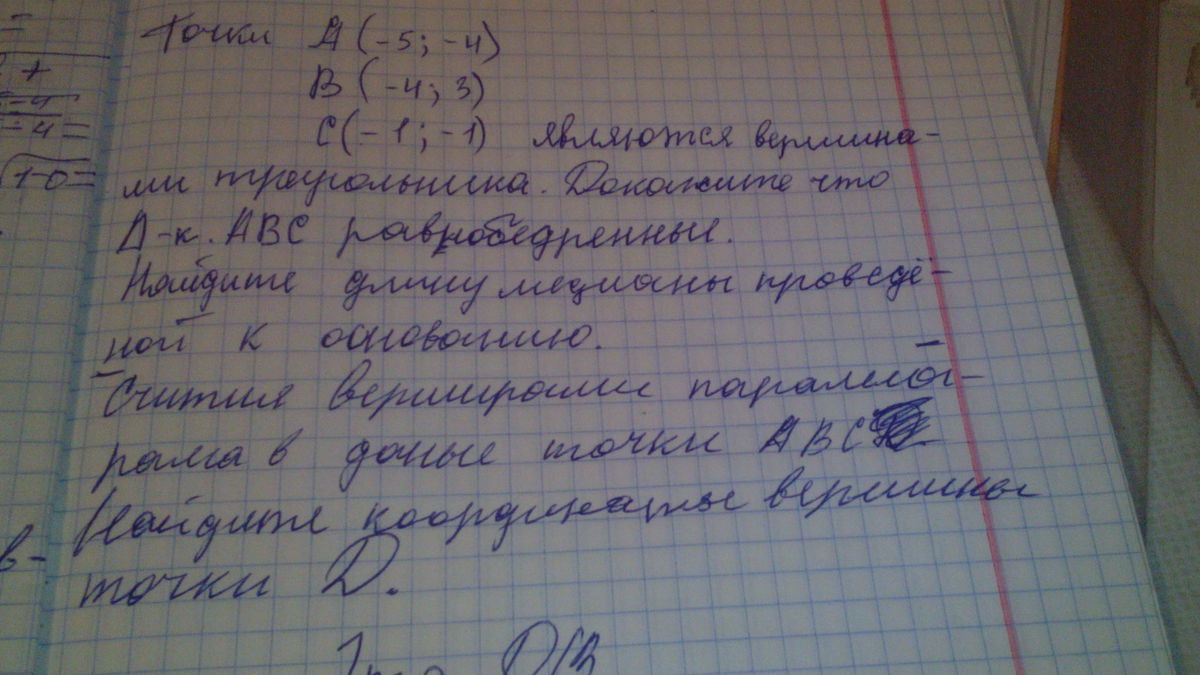 Точки А (-5; -4)
В (-4; 3)
С (-1; -1) являются вершина-
ми треугольника. Докажите что
Д-к. АВС равнобедренные.
Найдите длину медианы проведё-
ной к основанию.
Считая верширами параллелог-
рама в даные точки АВС
Найдите координаты вершины
точки D.